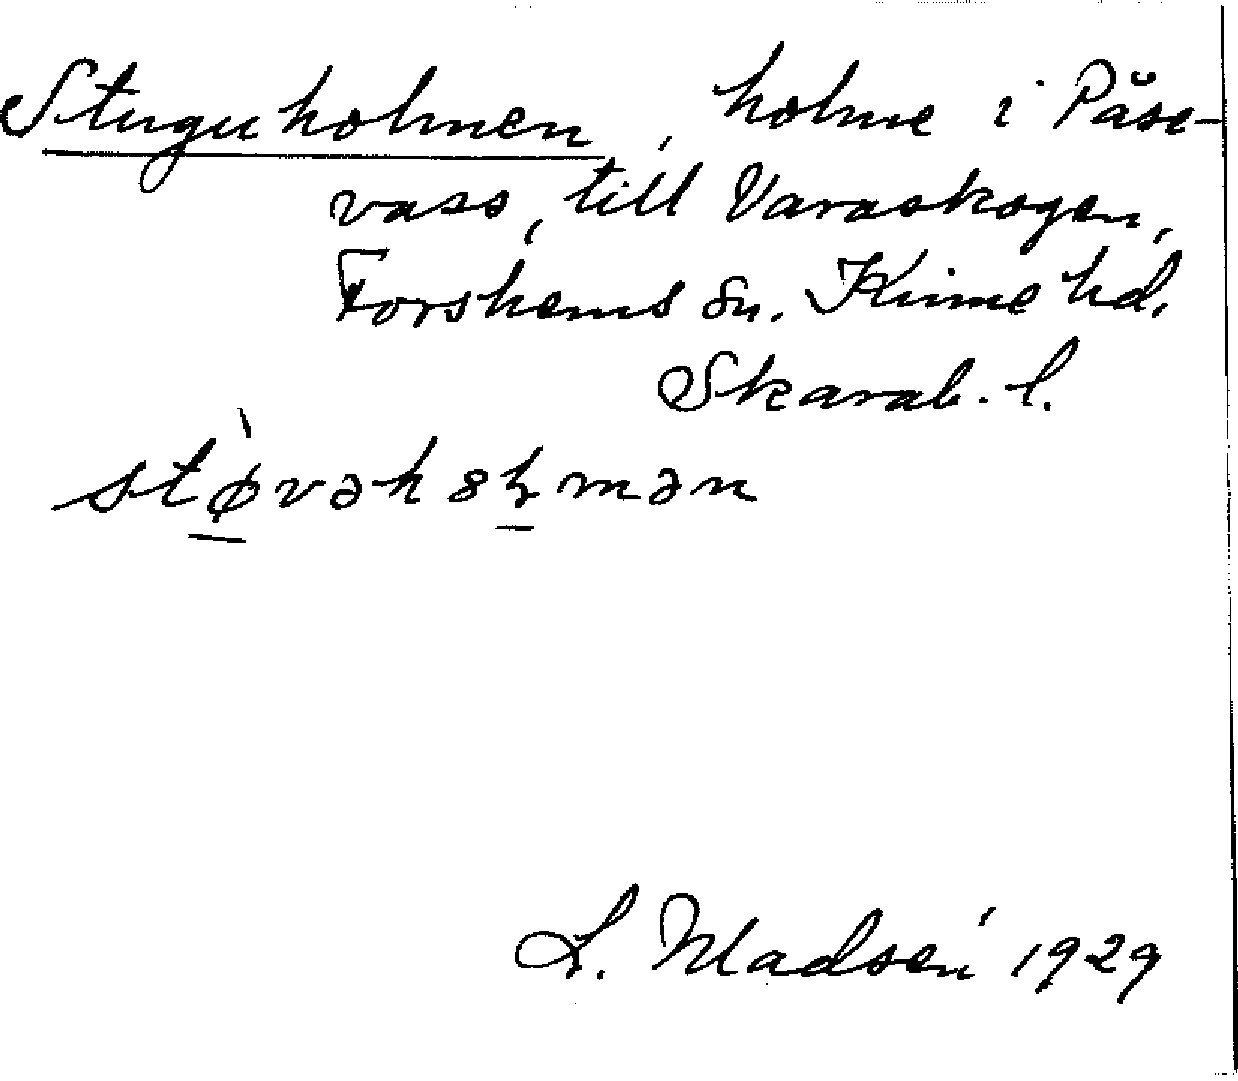 Stuguholmen, holme i Påse-
vass, till Varaskogen,
Forshems sn. Kinne hd.
Skarab. l.
støvəhɔlmən
L. Madsén 1929